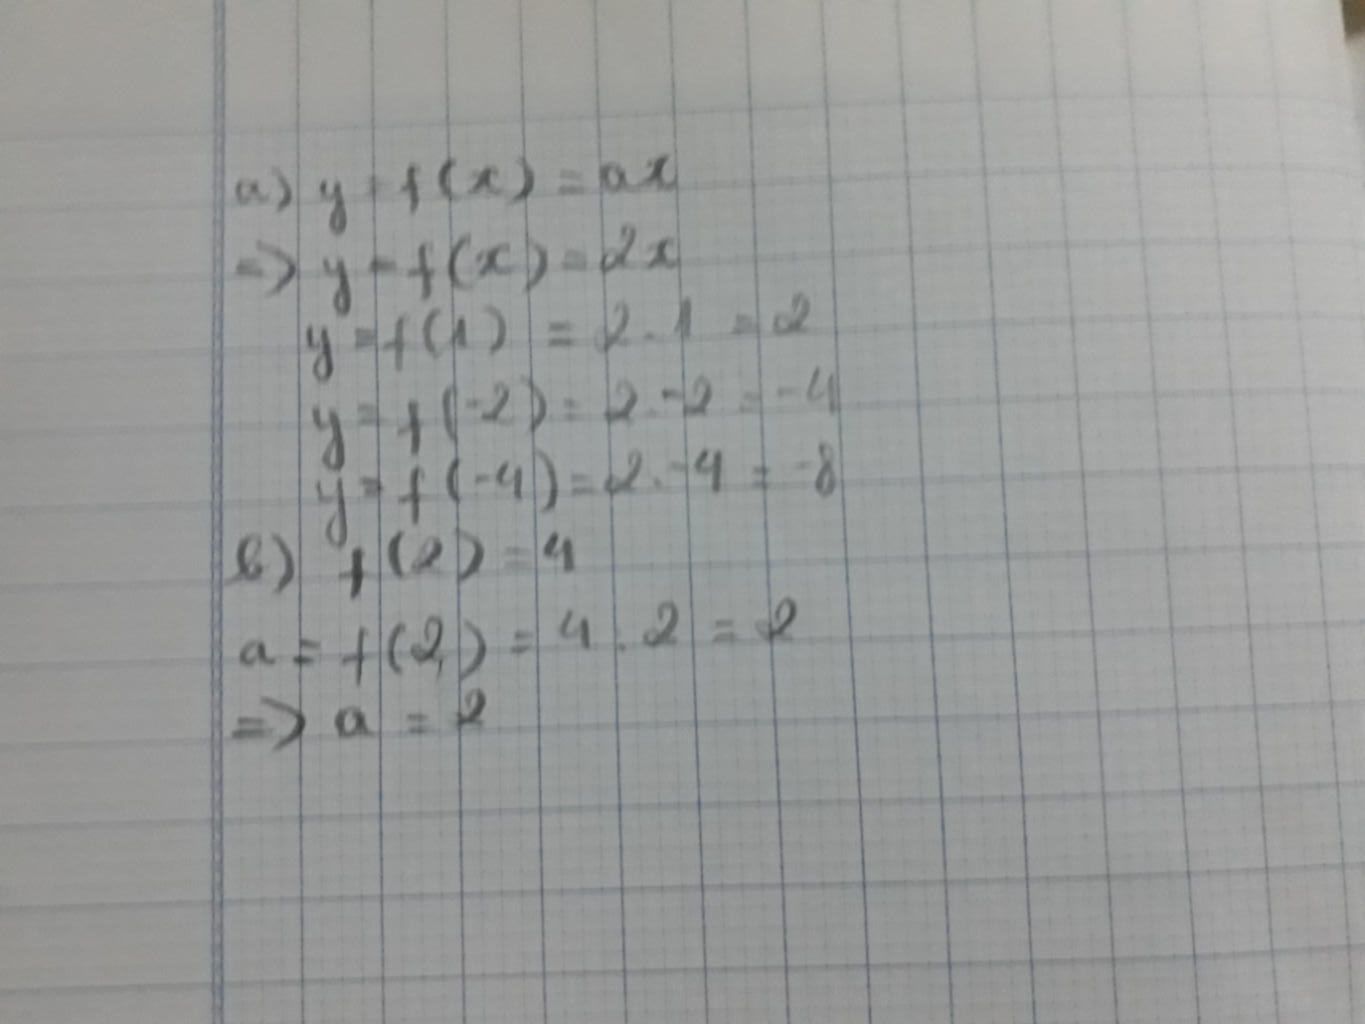 a) y = f(x) = ax
=> y = f(x) = 2x
y = f(1) = 2.1 = 2
y = f(-2) = 2.-2 = -4
y = f(-4) = 2.-4 = -8
b) f(2) = 4
a = f(2) = 4.2 = 2
=> a = 2